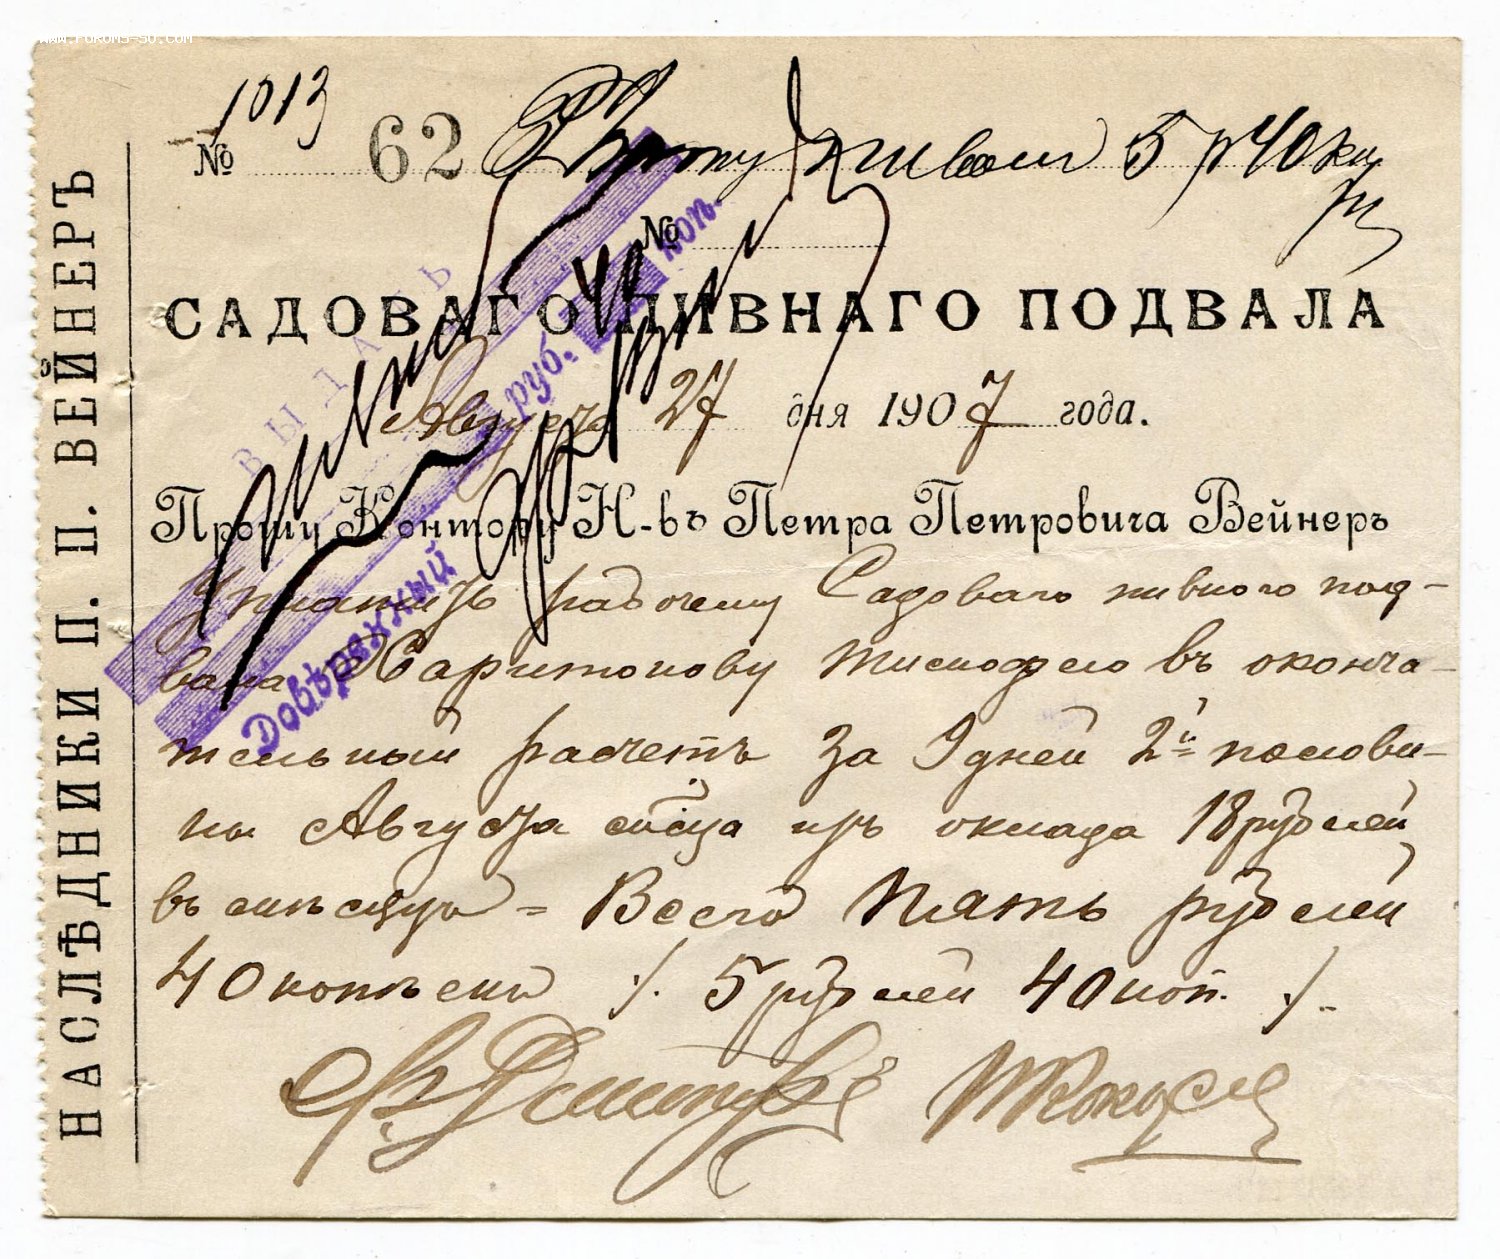 WWW.FORUMS-SU.COM
1013
№ 62 пивом 5 р 40 ку
№
САДОВАГО ПИВНАГО ПОДВАЛА
Августа 27 дня 1907 года.
Прошу Контору Н-въ Петра Петровича Вейнеръ
Уплатить рабочему Садоваго пивного под-
вала Харитонову Тимофею въ оконча-
тельный расчетъ за 9 дней 2й полови-
ны Августа м̃сца изъ оклада 18 рублей
въ месяцъ = Всего Пять рублей
40 копѣекъ /. 5 рублей 40 коп. /.
НАСЛѢДНИКИ П. П. ВЕЙНЕРЪ
ВЫДАТЬ
руб. коп.
Довѣренный